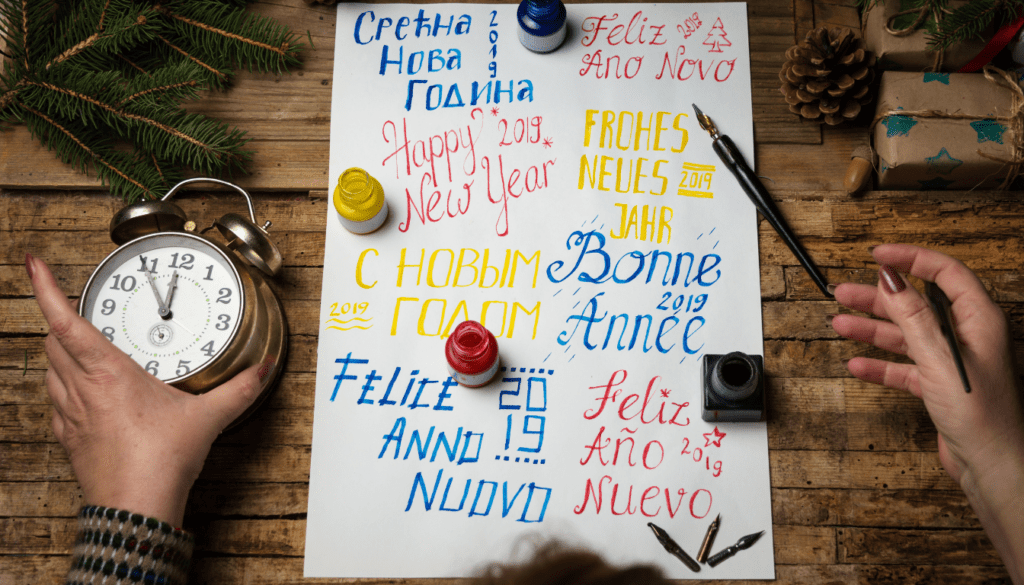 Срећна 2019
Нова
Година
Feliz 2019
Ano Novo
Happy 2019
New Year
FROHES
NEUES 2019
JAHR
С НОВЫМ
2019 ГОДОМ
Bonne
2019
Année
FELICE 20
ANNO 19
NUOVO
Feliz
Año 2019
Nuevo
11 12 1
10 2
9 3
8 4
6 5